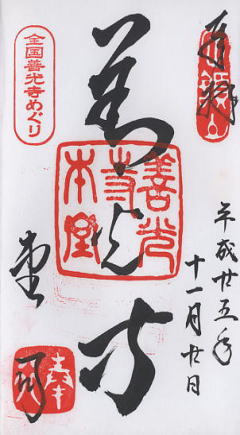 奉拝
平成廿五年
十一月廿日
善光寺
善光
寺
本堂
全国善光寺めぐり
堂司